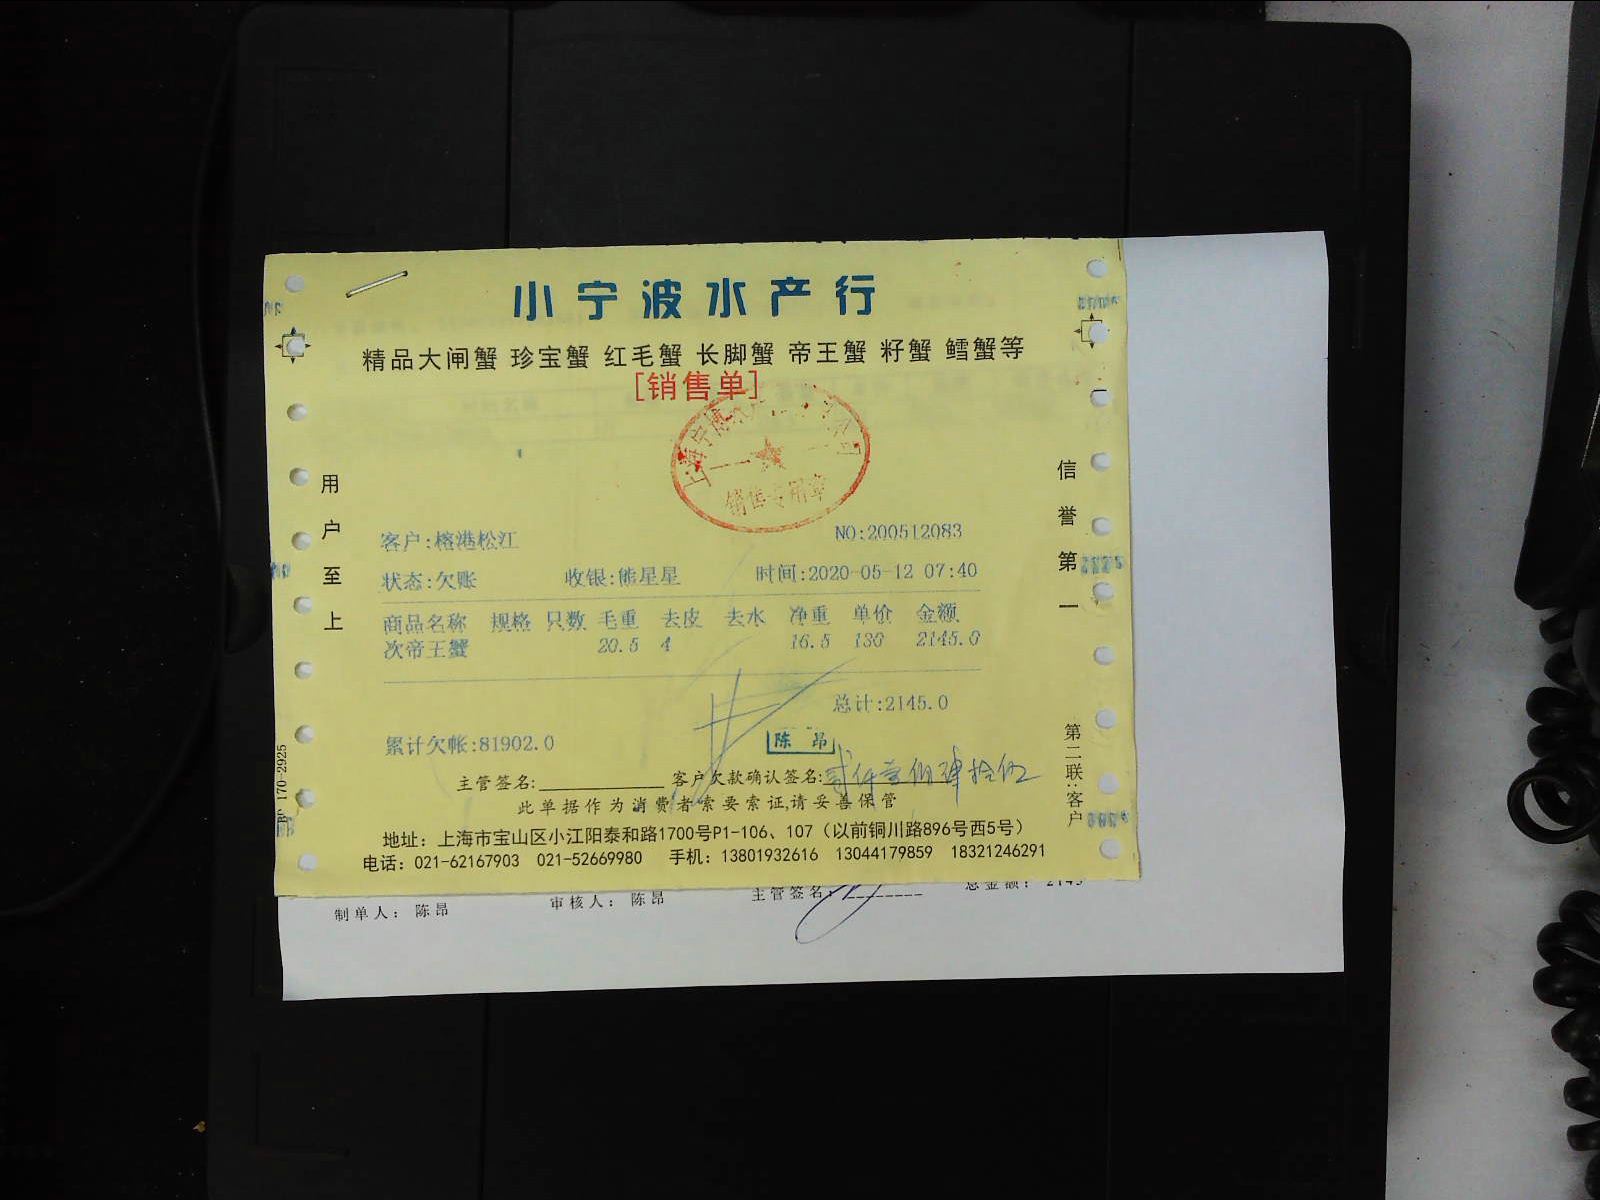 小宁波水产行
精品大闸蟹 珍宝蟹 红毛蟹 长脚蟹 帝王蟹 籽蟹 鳕蟹等
[销售单]
销售专用章
用户至上
信誉第一
客户:榕港松江 NO:200512083
状态:欠账 收银:熊星星 时间:2020-05-12 07:40
商品名称 规格 只数 毛重 去皮 去水 净重 单价 金额
次帝王蟹 20.5 4 16.5 130 2145.0
总计:2145.0
累计欠帐:81902.0
陈昂
主管签名: 客户欠款确认签名:贰仟壹佰肆拾伍
此单据作为消费者索要索证,请妥善保管
地址：上海市宝山区小江阳泰和路1700号P1-106、107（以前铜川路896号西5号）
电话：021-62167903 021-52669980 手机：13801932616 13044179859 18321246291
第二联:客户
170-2925
制单人： 陈昂 审核人： 陈昂 主管签名: 总金额： 2145